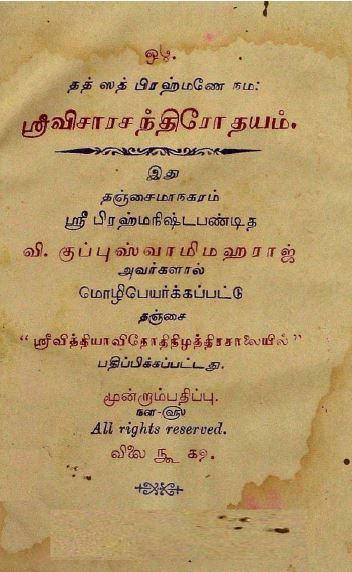 ஓம்.
தத் ஸத் பிரஹ்மணே நம:
ஸ்ரீவிசாரசந்திரோதயம்.
இது
தஞ்சைமாநகரம்
ஸ்ரீ பிரஹ்மநிஷ்டபண்டித
வி. குப்புஸ்வாமிமஹராஜ்
அவர்களால்
மொழிபெயர்க்கப்பட்டு
தஞ்சை
“ஸ்ரீவித்தியாவிநோதிநிமுத்திரசாலையில்”
பதிப்பிக்கப்பட்டது.
மூன்றாம்பதிப்பு.
All rights reserved.
விலை ரூ க௨.